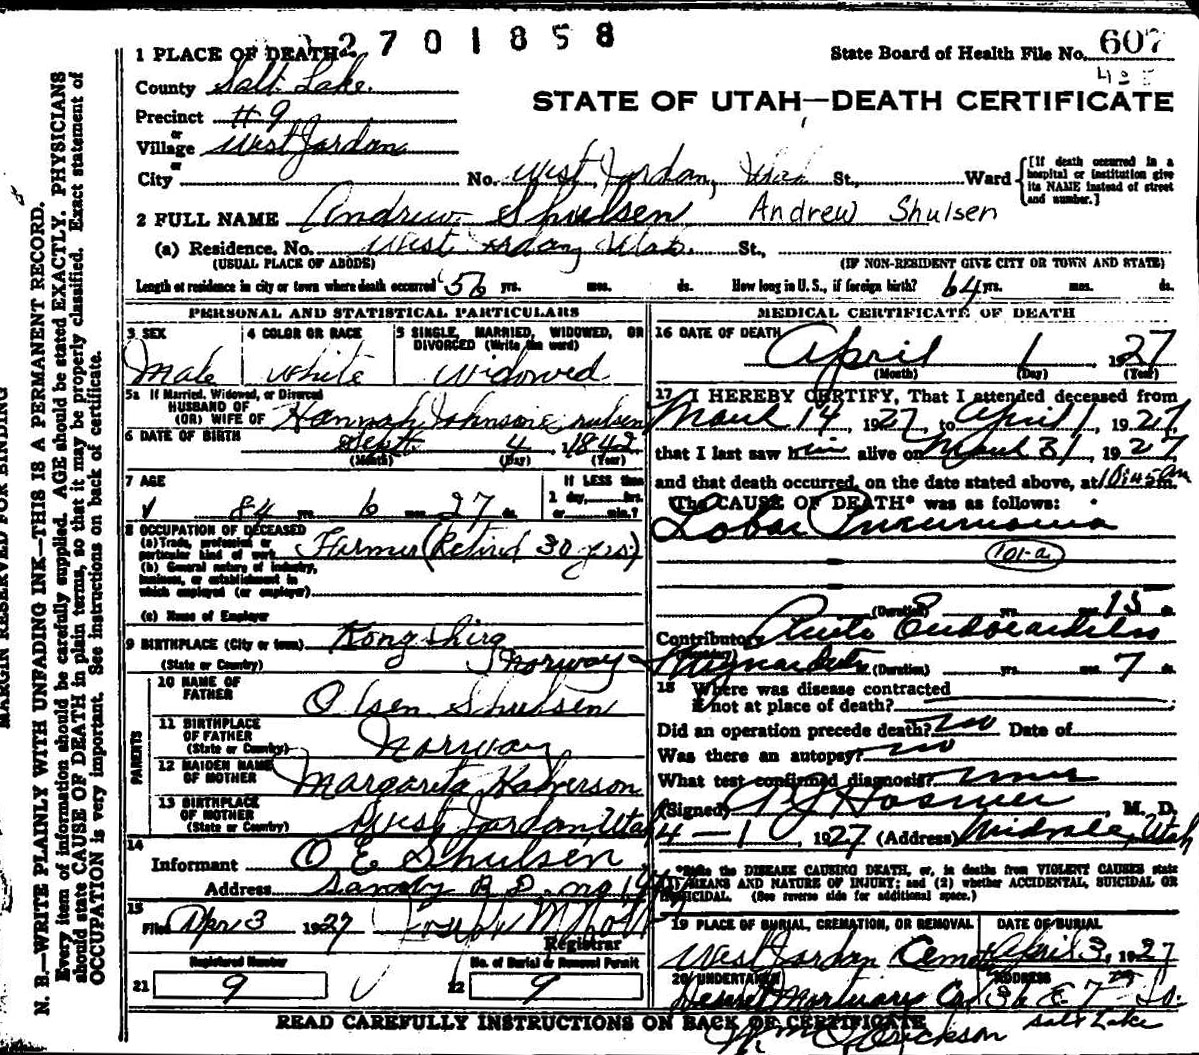 2701858
1 PLACE OF DEATH
State Board of Health File No. 607
County Salt Lake
STATE OF UTAH—DEATH CERTIFICATE
Precinct #9
or
Village West Jordan
or
City No. West Jordan, Utah St., Ward
[If death occurred in a hospital or institution give its NAME instead of street and number.]
2 FULL NAME Andrew Shulsen Andrew Shulsen
(a) Residence. No. West Jordan, Utah. St.,
(USUAL PLACE OF ABODE) (IF NON-RESIDENT GIVE CITY OR TOWN AND STATE)
Length of residence in city or town where death occurred 56 yrs. mos. ds. How long in U.S., if foreign birth? 64 yrs. mos. ds.
PERSONAL AND STATISTICAL PARTICULARS
3 SEX
Male
4 COLOR OR RACE
White
5 SINGLE, MARRIED, WIDOWED, OR DIVORCED (Write the word)
Widowed
5a If Married, Widowed, or Divorced
HUSBAND OF
(OR) WIFE OF Hannah Johnson
6 DATE OF BIRTH Sept. 4, 1842
(Month) (Day) (Year)
7 AGE
84 yrs. 6 mos. 27 ds.
IF LESS than
1 day, hrs.
or min.?
8 OCCUPATION OF DECEASED
(a) Trade, profession or
particular kind of work Farmer (Retired 30 yrs)
(b) General nature of industry,
business, or establishment in
which employed (or employer)
(c) Name of Employer
9 BIRTHPLACE (City or town)
(State or Country) Norway
PARENTS
10 NAME OF
FATHER Olsen Shulsen
11 BIRTHPLACE
OF FATHER
(State or Country) Norway
12 MAIDEN NAME
OF MOTHER Margarita Halverson
13 BIRTHPLACE
OF MOTHER
(State or Country) West Jordan, Utah
14
Informant O E Shulsen
Address Sandy R.D. no 1
15
Filed Apr 3 1927 Joseph M
Registrar
Registered Number
21 9
No. of Burial or Removal Permit
22 9
MEDICAL CERTIFICATE OF DEATH
16 DATE OF DEATH
April 1 1927
(Month) (Day) (Year)
17 I HEREBY CERTIFY, That I attended deceased from
March 14, 1927, to April 1, 1927,
that I last saw him alive on March 31, 1927
and that death occurred, on the date stated above, at 10:45 am
The CAUSE OF DEATH* was as follows:
Lobar Pneumonia
101-a
(Duration) yrs. mos. 15 ds.
Contributory Acute Endocarditis
& Myocarditis (Duration) yrs. mos. 7 ds.
18 Where was disease contracted
if not at place of death?
Did an operation precede death? no Date of
Was there an autopsy? no
What test confirmed diagnosis?
(Signed) Hosmer M. D.
4-1 1927 (Address) Midvale, Utah
*State the DISEASE CAUSING DEATH, or, in deaths from VIOLENT CAUSES state
(1) MEANS AND NATURE OF INJURY; and (2) whether ACCIDENTAL, SUICIDAL OR
HOMICIDAL. (See reverse side for additional space.)
19 PLACE OF BURIAL, CREMATION, OR REMOVAL
West Jordan Cemetery
DATE OF BURIAL
April 3, 1927
20 UNDERTAKER
Deseret Mortuary Co.
ADDRESS
36 E 7 So.
Salt Lake
Erickson
READ CAREFULLY INSTRUCTIONS ON BACK OF CERTIFICATE
MARGIN RESERVED FOR BINDING
N. B.—WRITE PLAINLY WITH UNFADING INK—THIS IS A PERMANENT RECORD.
Every item of information should be carefully supplied. AGE should be stated EXACTLY. PHYSICIANS
should state CAUSE OF DEATH in plain terms, so that it may be properly classified. Exact statement of
OCCUPATION is very important. See instructions on back of certificate.